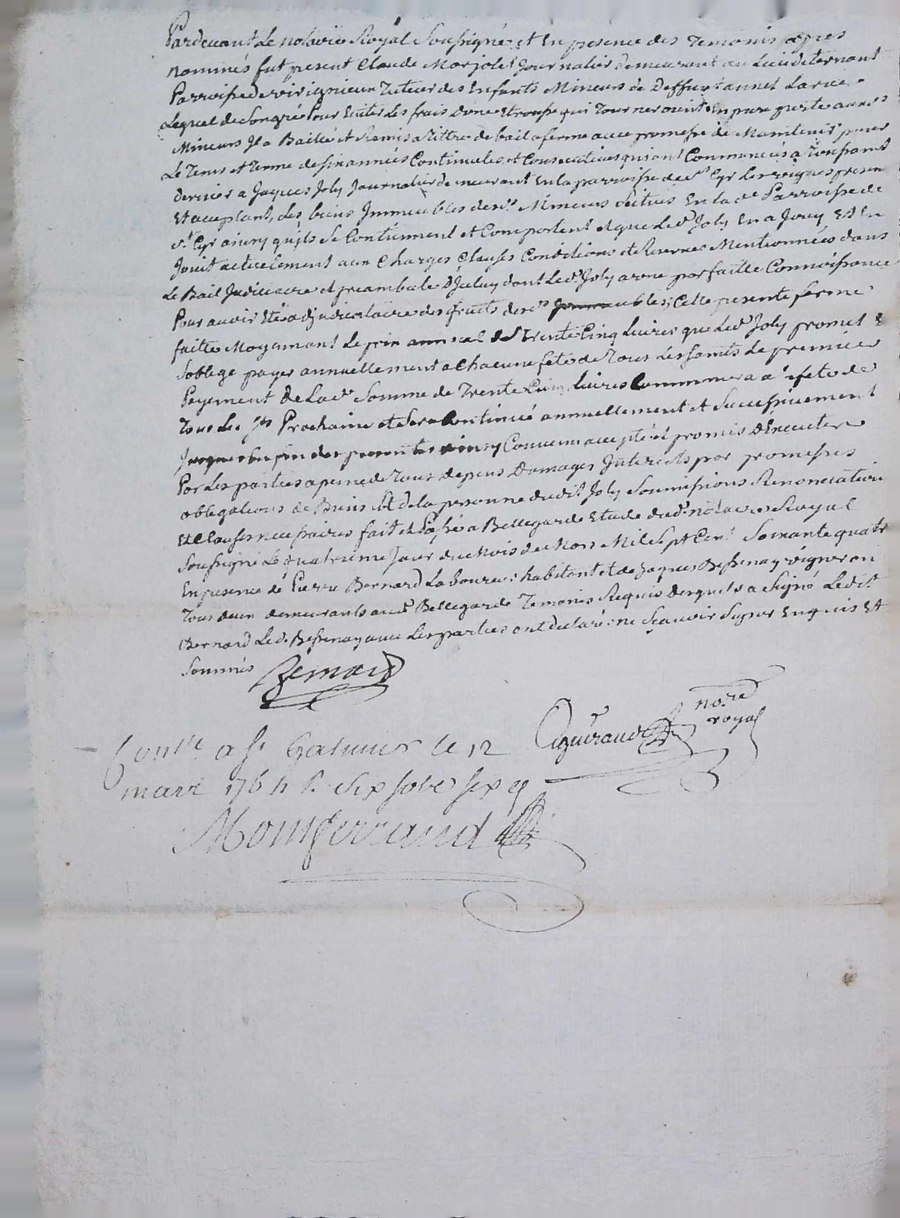 Pardevant Le notaire Royal Soussigné et En presence des Temoins apres
nommés fut present Claude Marjolet Journalier demeurant au Lieu de
Parroisse de virignieux Tuteur des Enfants Mineurs de Deffunt annet Larue
Lequel de Son gré Pour Eviter Les frais D'une qui Tourneroient En pure perte auxd
Mineurs Il a Baillé et Remis a Tittre de bail a ferme avec promesse de Maintenir pour
Le Tems et Terme de six années Continuelles et Consecutives qui ont Commencés a Toussaint
dernier a Jaques Joly Journalier demeurant En la parroisse de St Cyr Les vignes present
Et acceptant, Les biens Immeubles desd. Mineurs scitués En lad. Parroisse de
St Cyr ainsy qu'ils Se Contiennent et Comportent et que Led. Joly En a Jouy Et En
Jouit actuelement aux Charges Clauses Conditions et Reserves Mentionnées dans
Le Bail Judiciaire et preambule D'iceluy dont Led. Joly a une parfaitte Connoissance
Pour avoir Eté adjudicataire des fruits desd. Immeubles; Cette presente ferme
faitte Moyennant Le prix annuel de Trente Cinq Livres que Led. Joly promet &
S'oblege payer annuellement a Chacune fête de Tous Les Saints Le premier
Payement de Lad. Somme de Trente Cinq Livres Commencera a la fete de
Tous Les Sts Prochaine et Sera Continué annuellement et Successivement
Jusques En fin des presentes ainsy Convenu accepté et promis D'Executer
Par Les parties a peine de Tous depens Domages Interets par promesses
obligations de Biens et de la personne dudit Joly Soumissions Renonciations
Et Clauses necessaires fait et Passé a Bellegarde Etude dud. notaire Royal
Soussigné Le quatrieme Jour du Mois de Mars Mil Sept Cent Soixante quatre
En presence de Pierre Bernard Laboureur habitant et de Jaques Bessenay vigneron
Tous deux demeurants aud. Bellegarde Temoins Requis desquels a Signé Ledit
Bernard Led. Bessenay avec Les parties ont declaré ne Sçavoir Signer Enquis Et
Sommés Bernard
Guiraud nore royal
Contlé a St Galmier le 12
mars 1764 R. six sols six d
Montferrand